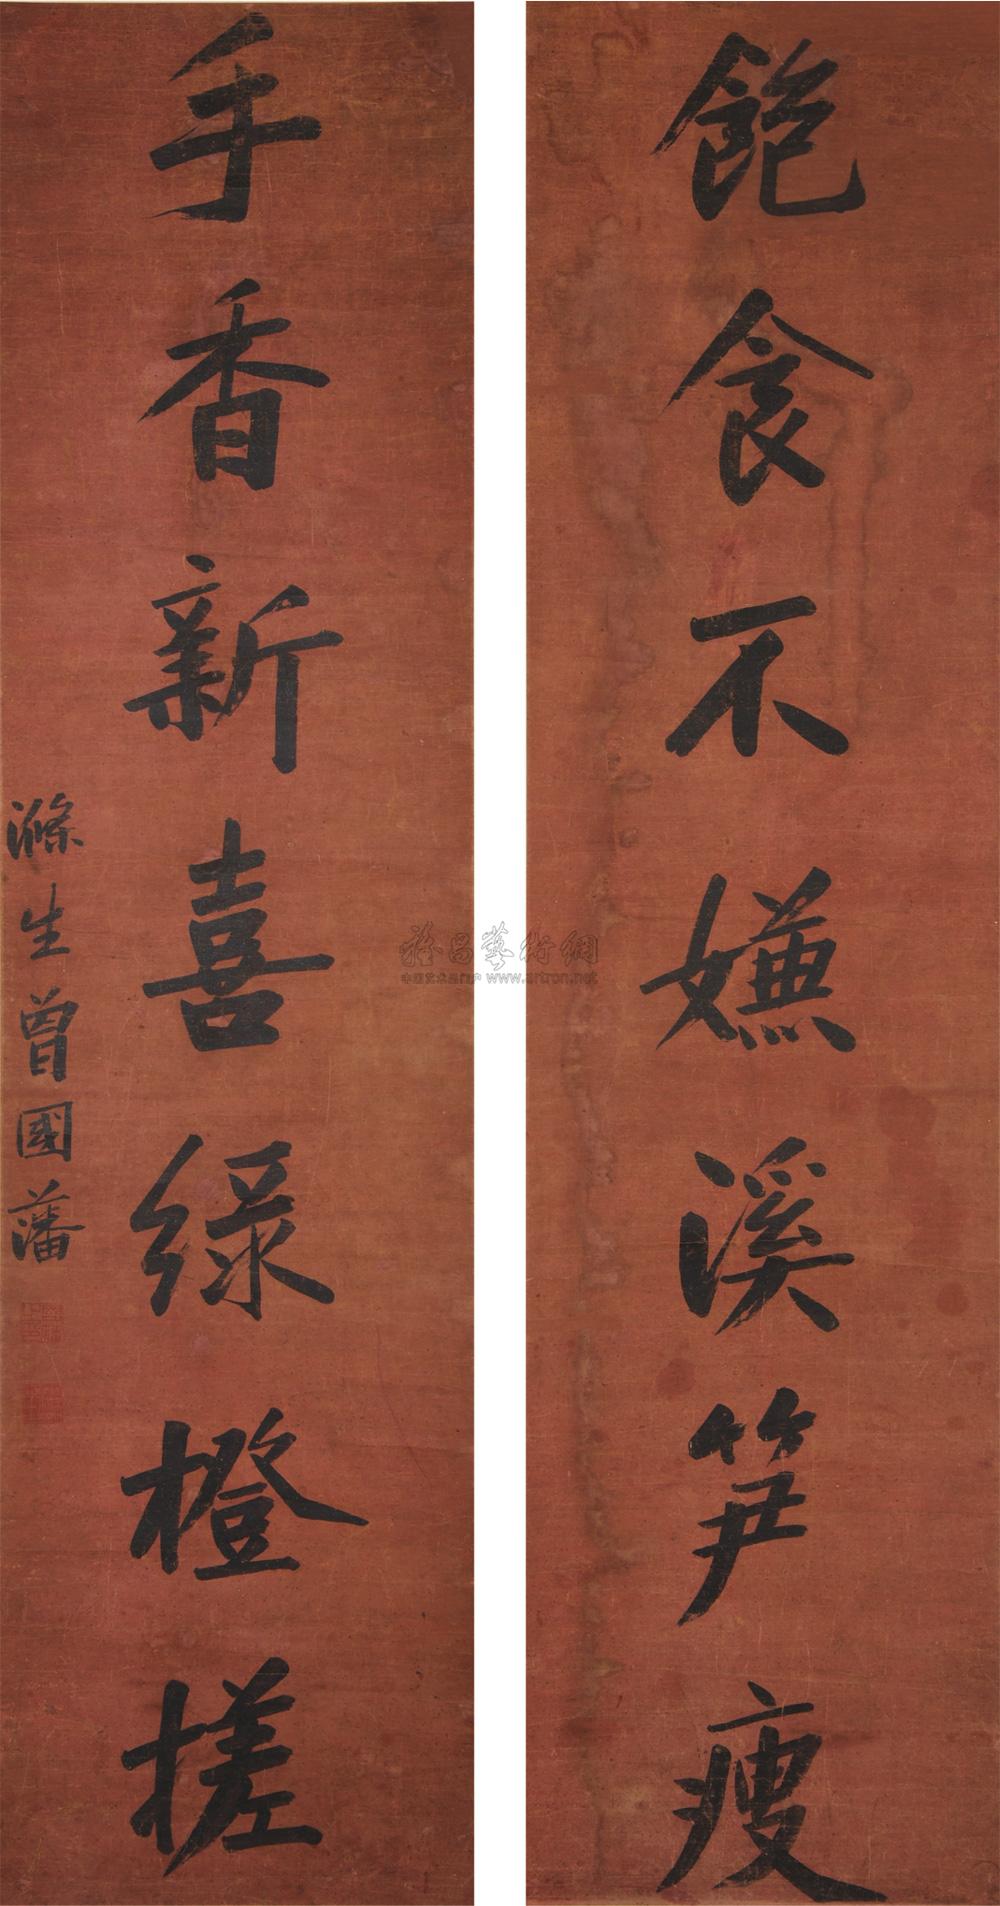 飽食不嫌溪笋瘦
手香新喜緑橙搓
滌生曾國藩
雅昌藝術網
中国艺术品门户 www.artron.net